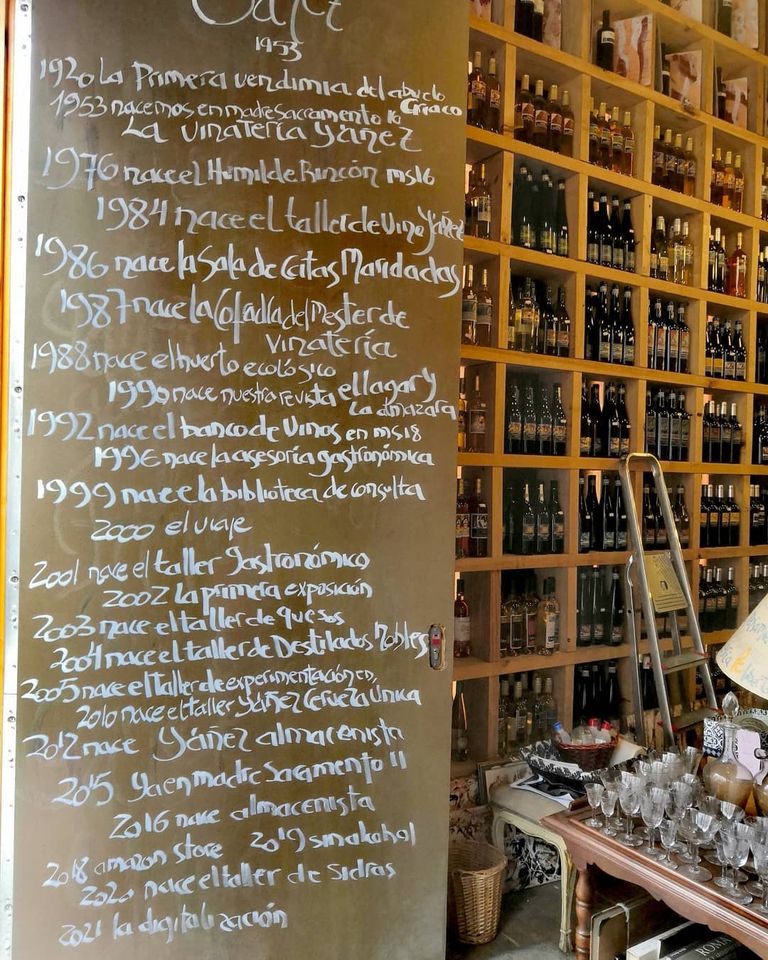 Café
1953
1920 la Primera vendimia del abuelo
Ciriaco
1953 nacemos en madre sacramento 10
La vinatería Yáñez
1976 nace el Humilde Rincón ms16
1984 nace el taller de vino Yáñez
1986 nace la Sala de Catas Maridadas
1987 nace la Cofradía del Mester de
vinatería
1988 nace el huerto ecológico
1990 nace nuestra revista el lagar y
la almazara
1992 nace el banco de vinos en ms18
1996 nace la asesoría gastronómica
1999 nace la biblioteca de consulta
2000 el viaje
2001 nace el taller gastronómico
2002 la primera exposición
2003 nace el taller de quesos
2004 nace el taller de Destilados Nobles
2005 nace el taller de experimentación en,
2010 nace el taller Yáñez Cerveza Única
2012 nace Yáñez almacenista
2015 ya en madre Sacramento 11
2016 nace almacenista
2018 amazon store 2019 sinalkohol
2020 nace el taller de sidras
2021 la digitalización